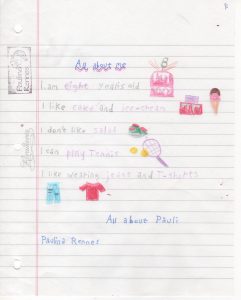 All about me
8
I am eight years old
I like cake and ice-cream
I don't like salad
I can play Tennis
I like wearing jeans and T-shirts
All about Pauli
Paulina Rennes
Paulina
Rennes